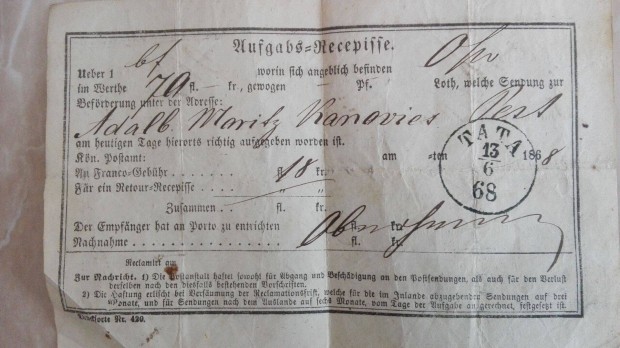 Aufgabs-Recepisse.
Ueber 1 bf worin sich angeblich befinden
im Werthe 70 fl. — kr., gewogen — Pf. Loth, welche Sendung zur
Beförderung unter der Adresse:
Adalb. Moritz Kanovics Pest
am heutigen Tage hierorts richtig aufgegeben worden ist.
Kön. Postamt: am -ten 1868
TATA
13
6
68
An Franco-Gebühr fl. 18 kr.
Für ein Retour-Recepisse „ „
Zusammen fl. kr.
Der Empfänger hat an Porto zu entrichten fl. kr.
Nachnahme
Reclamirt am
Zur Nachricht. 1) Die Postanstalt haftet sowohl für Abgang und Beschädigung an den Postsendungen, als auch für den Verlust
derselben nach den diesfalls bestehenden Vorschriften.
2) Die Haftung erlischt bei Versäumung der Reclamationsfrist, welche für die im Inlande abzugebenden Sendungen auf drei
Monate, und für Sendungen nach dem Auslande auf sechs Monate, vom Tage der Aufgabe an gerechnet, festgesetzt ist.
Nr. 420.